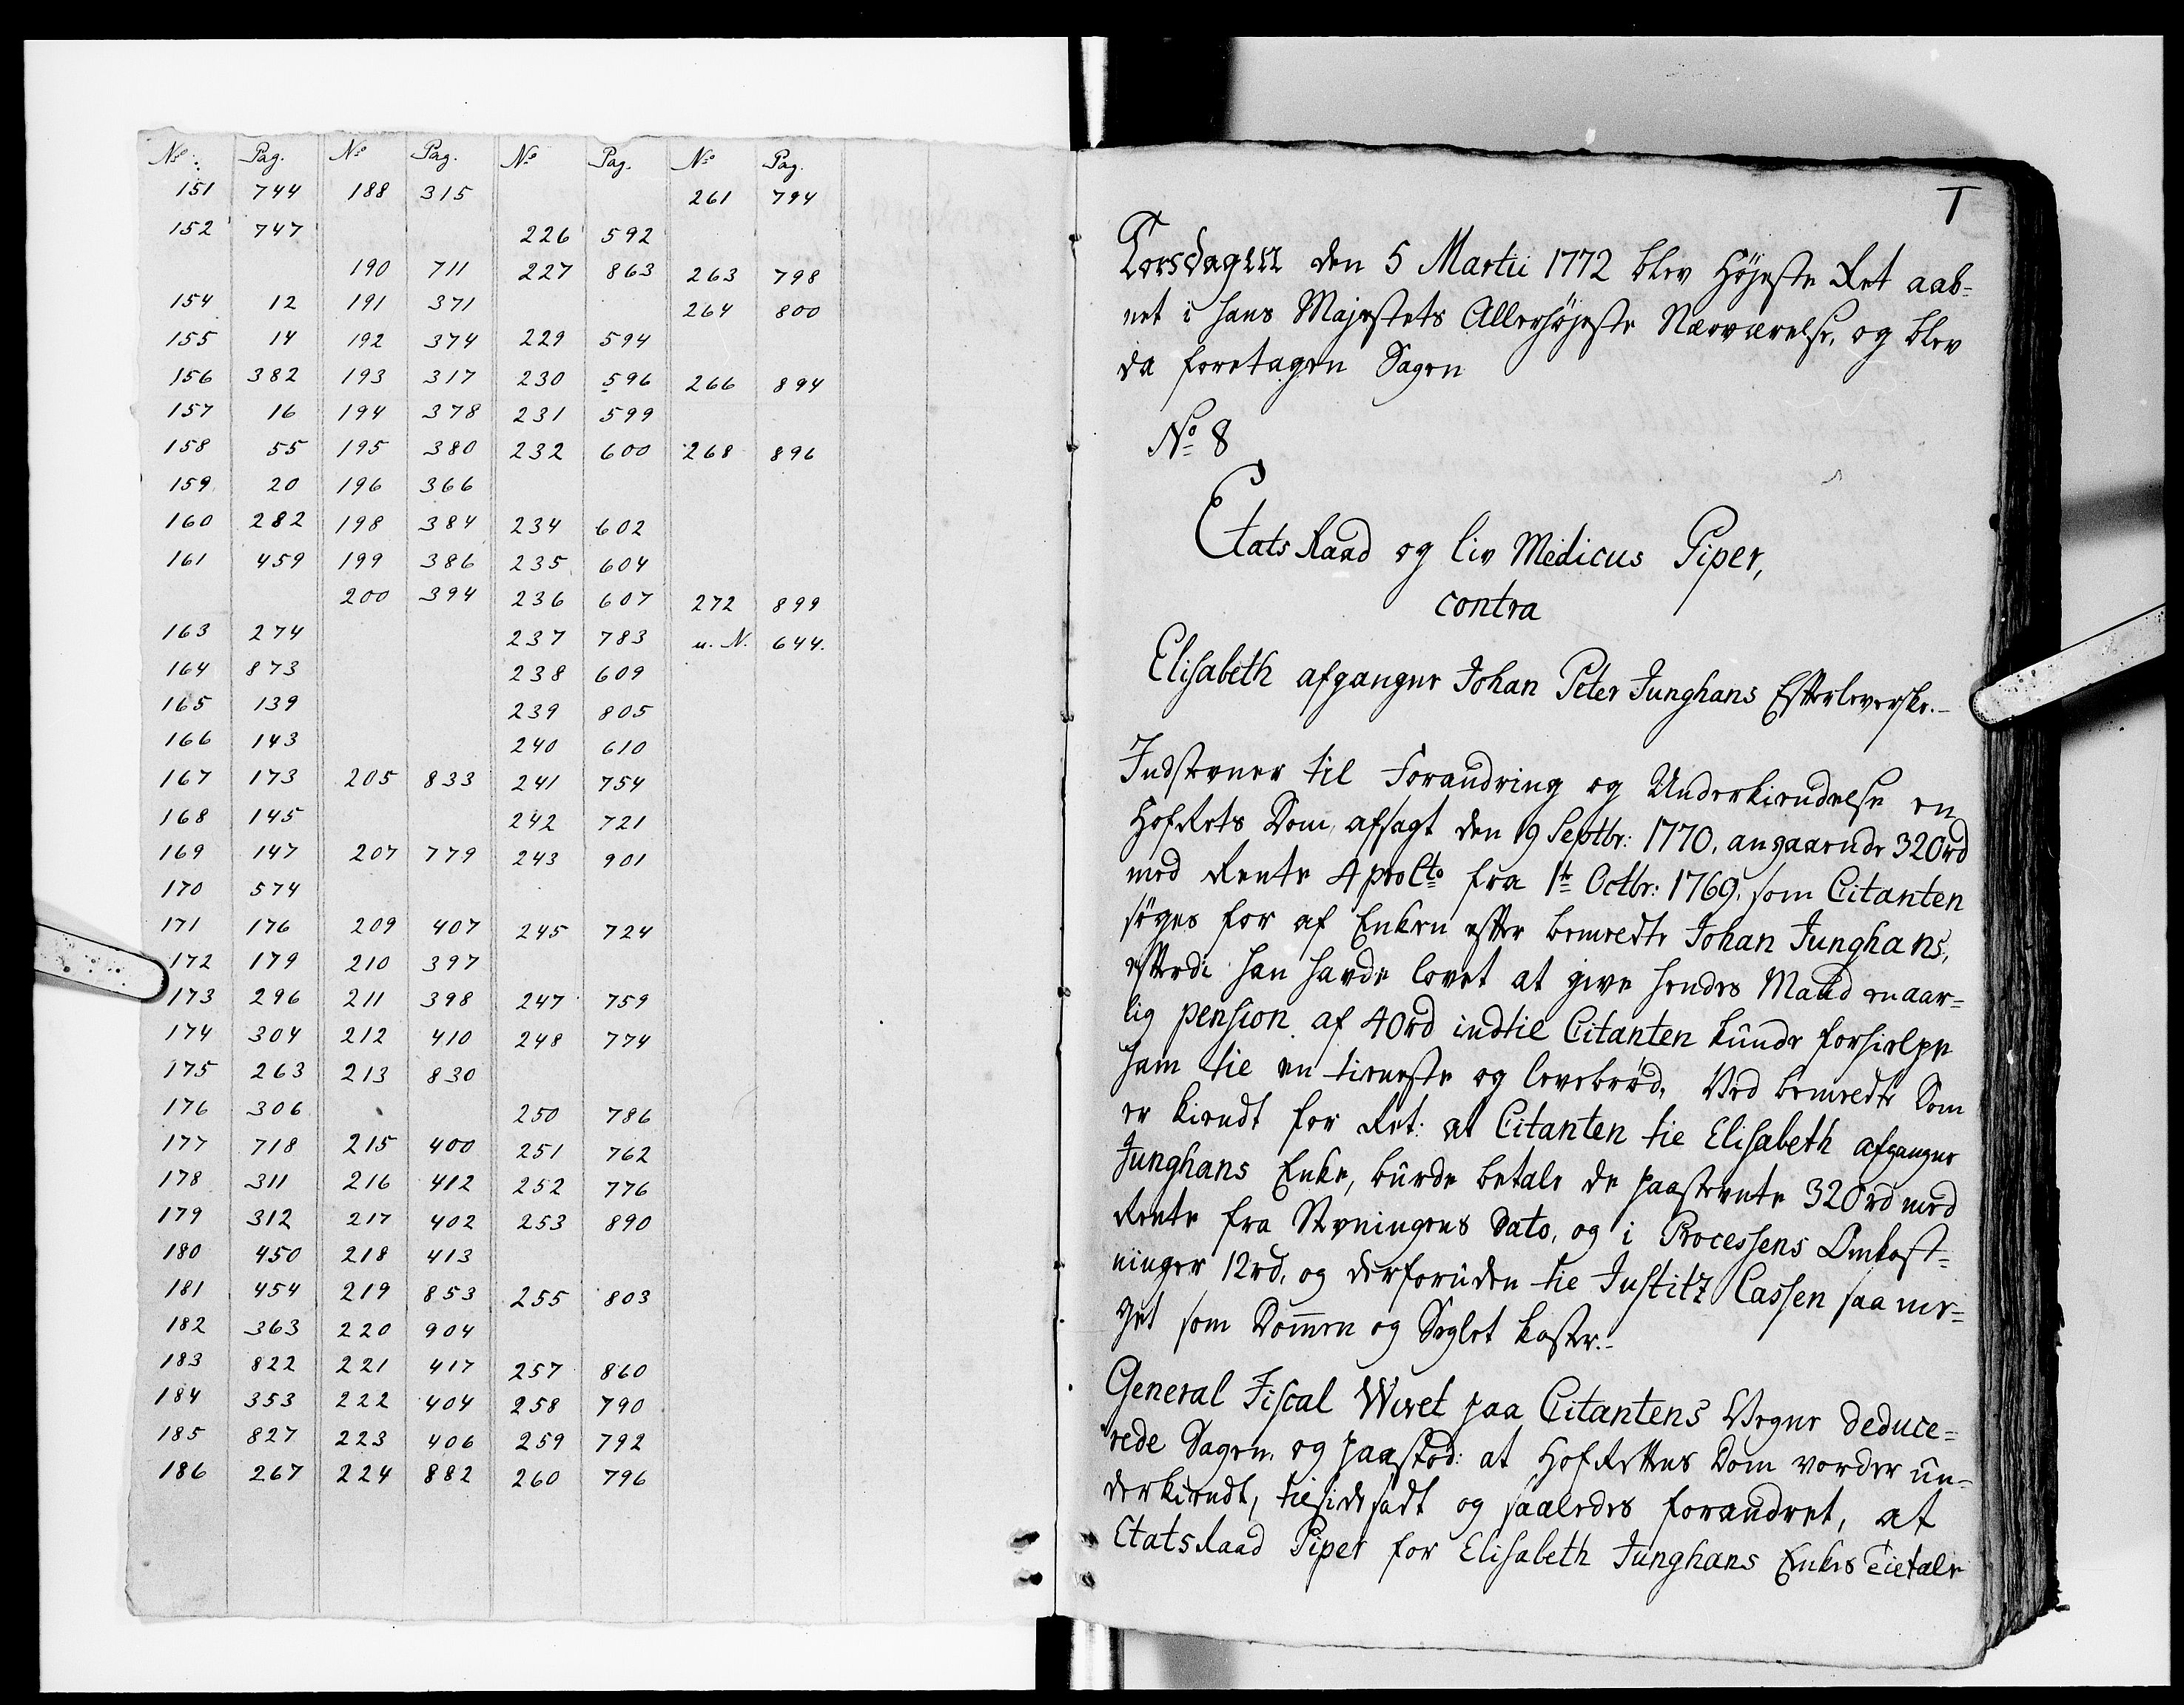 No: Pag. No Pag. No Pag. No Pag.
151 744 188 315 261 794
152 747 226 592
190 711 227 863 263 798
154 12 191 371 264 800
155 14 192 374 229 594
156 382 193 317 230 596 266 894
157 16 194 378 231 599
158 55 195 380 232 600 268 896
159 20 196 366
160 282 198 384 234 602
161 459 199 386 235 604
200 394 236 607 272 899
163 274 237 783 u. N. 644.
164 873 238 609
165 139 239 805
166 143 240 610
167 173 205 833 241 754
168 145 242 721
169 147 207 779 243 901
170 574
171 176 209 407 245 724
172 179 210 397
173 296 211 398 247 759
174 304 212 410 248 774
175 263 213 830
176 306 250 786
177 718 215 400 251 762
178 311 216 412 252 776
179 312 217 402 253 890
180 450 218 413
181 454 219 853 255 803
182 363 220 904
183 822 221 417 257 860
184 353 222 404 258 790
185 827 223 406 259 792
186 267 224 882 260 796
1
Torsdagen den 5 Martii 1772 blev Højeste Ret aab-
net i Hans Majestets Allerhøjeste Nærværelse, og blev
da foretagen Sagen
No 8
Etats Raad og Liv Medicus Piper,
contra
Elisabeth afgangne Johan Peter Junghans Efterleverske.-
Indstevner til Forandring og Underkiendelse en
HofRets Dom, afsagt den 19 Septbr: 1770, angaaende 320rd
med Rente 4 proCto fra 1te Octbr: 1769, som Citanten
søges for af Enken efter bemeldte Johan Junghans,
efterdi han havde lovet at give hendes Mand en aar-
lig pension af 40rd indtil Citanten kunde forhielpe
ham til en tieneste og levebrød, Ved bemeldte Dom
er kiendt for Ret: at Citanten til Elisabeth afgangne
Junghans Enke, burde betale de paastevnte 320rd med
Rente fra Stevningens Dato, og i Processens Omkost-
ninger 12rd, og derforuden til Justitz Cassen saa me-
get som Dommen og Seglet koster.-
General Fiscal Wivet paa Citantens Vegne deduce-
rede Sagen, og paastod: at HofRettens Dom vorder un-
derkiendt, tilsidesadt og saaledes forandret, at
EtatsRaad Piper for Elisabeth Junghans Enkes Tiltale